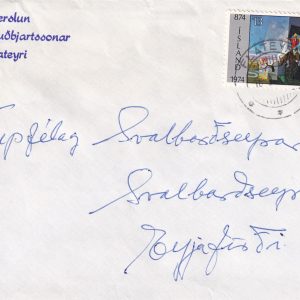 erslun
uðbjartssonar
ateyri
874
13
ÍSLAND
1974
upfélag Svalbarðseyrar
Svalbarðseyri
Eyjafirði